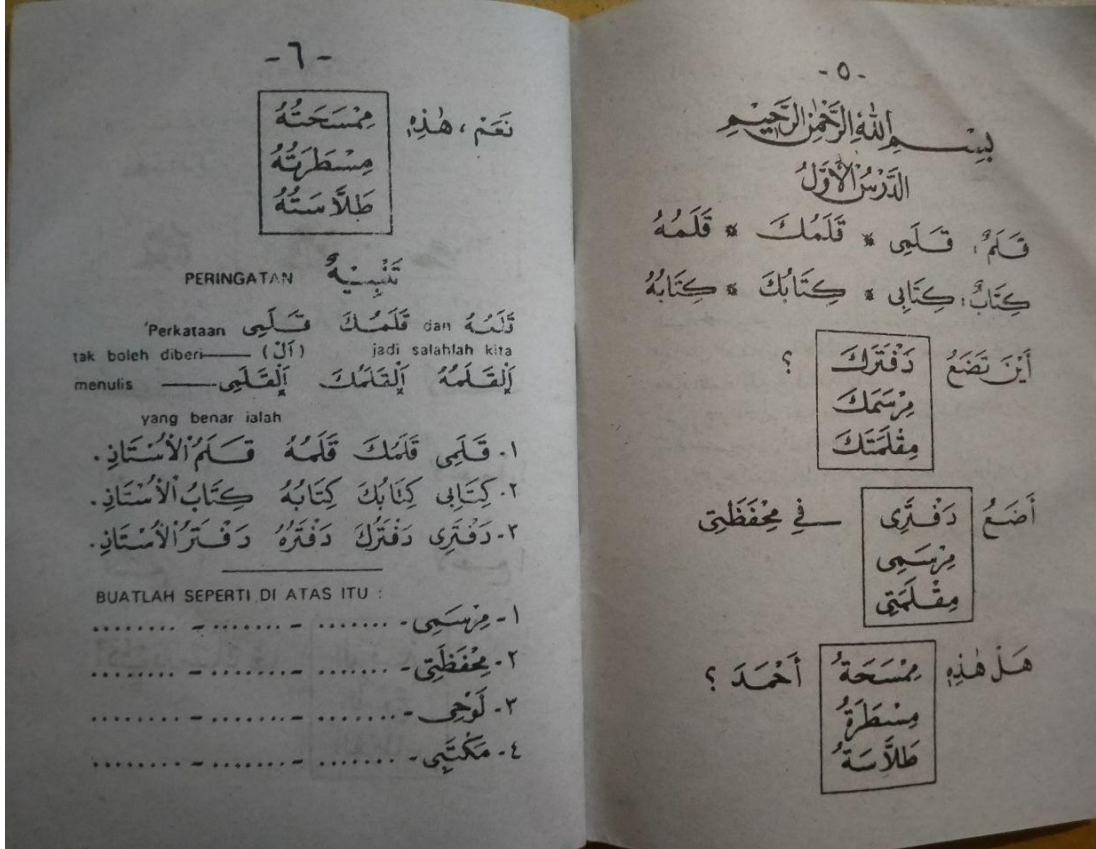 -٥-
بِسْمِ اللهِ الرَّحْمٰنِ الرَّحِيْمِ
الدَّرْسُ الْأَوَّلُ
قَلَمٌ : قَلَمِى * قَلَمُكَ * قَلَمُهُ
كِتَابٌ : كِتَابِى * كِتَابُكَ * كِتَابُهُ
أَيْنَ تَضَعُ دَفْتَرَكَ ؟
مِرْسَمَكَ
مِقْلَمَتَكَ
أَضَعُ دَفْتَرِى فِي مِحْفَظَتِى
مِرْسَمِى
مِقْلَمَتِى
هَلْ هٰذِهِ مِمْسَحَةُ أَحْمَدَ ؟
مِسْطَرَةُ
طَلَّاسَةُ
-٦-
نَعَمْ ، هٰذِهِ مِمْسَحَتُهُ
مِسْطَرَتُهُ
طَلَّاسَتُهُ
PERINGATAN تَنْبِيْهٌ
'Perkataan قَلَمِى قَلَمُكَ dan قَلَمُهُ
tak boleh diberi—— (اَلْ) jadi salahlah kita
menulis —— اَلْقَلَمِى اَلْقَلَمُكَ اَلْقَلَمُهُ
yang benar ialah
١- قَلَمِى قَلَمُكَ قَلَمُهُ قَلَمُ الْأُسْتَاذِ.
٢- كِتَابِى كِتَابُكَ كِتَابُهُ كِتَابُ الْأُسْتَاذِ.
٣- دَفْتَرِى دَفْتَرُكَ دَفْتَرُهُ دَفْتَرُ الْأُسْتَاذِ.
BUATLAH SEPERTI DI ATAS ITU :
١- مِرْسَمِى - ....... - ........ - ........
٢- مِحْفَظَتِى - ....... - ........ - ........
٣- لَوْحِى - ....... - ........ - ........
٤- مَكْتَبِى - ....... - ........ - ........